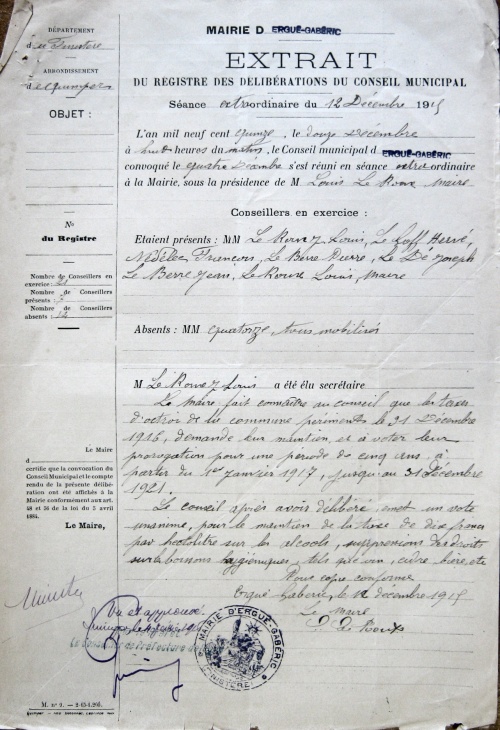 DÉPARTEMENT
du Finistère
ARRONDISSEMENT
de Quimper
OBJET :
No
du Registre
Nombre de Conseillers en
exercice: 21
Nombre de Conseillers
présents : 7
Nombre de Conseillers
absents : 14
Le Maire
d
certifie que la convocation du
Conseil Municipal et le compte
rendu de la présente délibé-
ration ont été affichés à la
Mairie conformément aux art.
48 et 56 de la loi du 5 avril
1884.
Le Maire,
Minute
M. n° 9. — 2-65-1.205.
MAIRIE D ERGUÉ-GABÉRIC
EXTRAIT
DU REGISTRE DES DELIBÉRATIONS DU CONSEIL MUNICIPAL
Séance extraordinaire du 12 Décembre 1915
L'an mil neuf cent quinze, le douze Décembre
à huit heures du matin, le Conseil municipal d ERGUÉ-GABÉRIC
convoqué le quatre Décembre s'est réuni en séance extra ordinaire
à la Mairie, sous la présidence de M Louis Le Roux Maire
Conseillers en exercice :
Etaient présents : MM Le Rouzs Louis, Le Goff Hervé,
Nédélec François, Le Berre Pierre, Le Dé Joseph
Le Berre Jean, Le Roux Louis, Maire
Absents : MM quatorze, tous mobilisés
M Le Rouzs Louis a été élu secrétaire
Le Maire fait connaître au conseil que les taxes
d'octroi de la commune périmentes le 31 Décembre
1916, demande leur maintien et à voter leur
prorogation pour une période de cinq ans à
partir du 1er janvier 1917, jusqu'au 31 Décembre
1921.
Le conseil après avoir délibéré, émet un vote
unanime, pour le maintien de la taxe de dix francs
par hectolitre sur les alcools, suppression des droits
sur la boissons hygiéniques, tels que vin, cidre, bière, etc
Pour copie conforme
Ergué-Gabéric, le 12 décembre 1915
Le Maire
L. Le Roux
Vu et approuvé
Quimper, le
Le Conseiller de Préfecture
MAIRIE D'ERGUÉ-GABÉRIC
(FINISTÈRE)